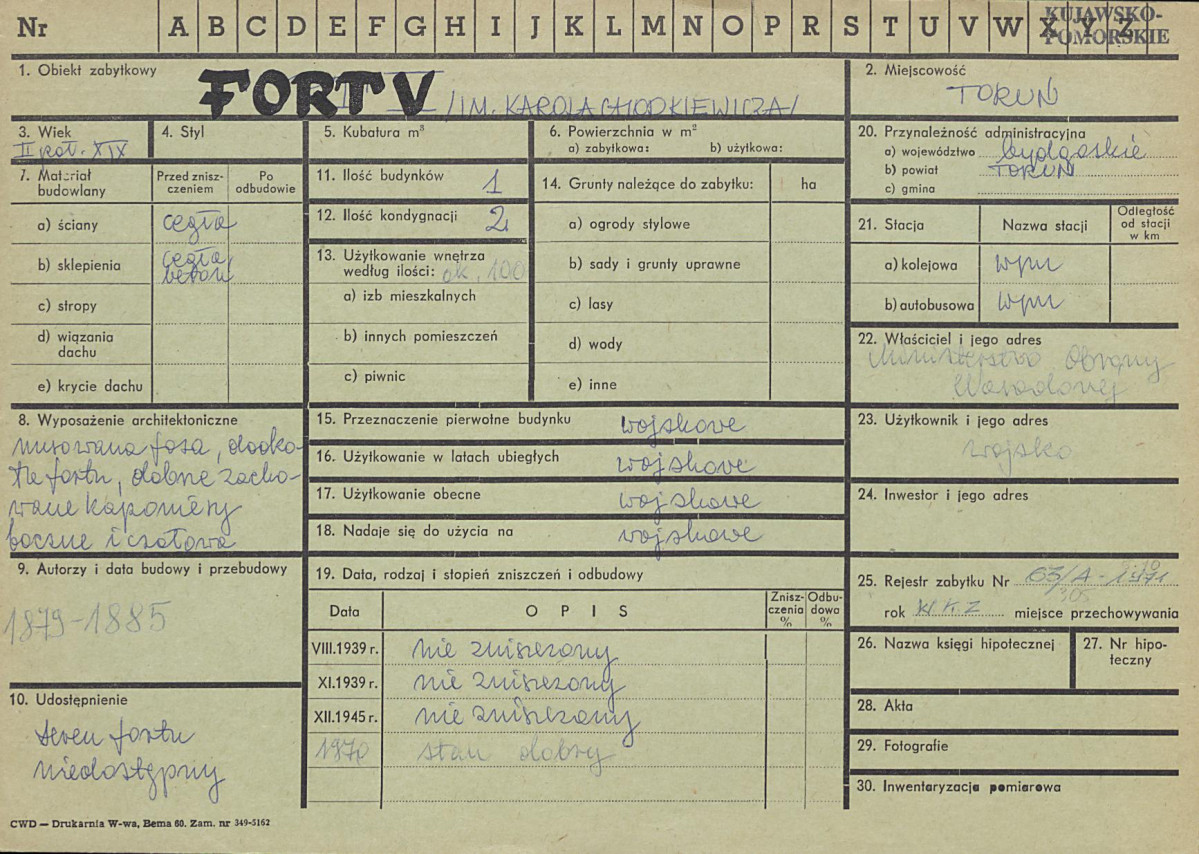 Nr A B C D E F G H I J K L M N O P R S T U V W X Y Z
KUJAWSKO-
POMORSKIE
1. Obiekt zabytkowy
FORT V /IM. KAROLA CHODKIEWICZA/
2. Miejscowość
TORUŃ
3. Wiek
II poł. XIX
4. Styl
5. Kubatura m³
6. Powierzchnia w m²
a) zabytkowa: b) użytkowa:
20. Przynależność administracyjna
a) województwo bydgoskie
b) powiat TORUŃ
c) gmina
7. Materiał
budowlany
Przed znisz-
czeniem
Po
odbudowie
a) ściany cegła
b) sklepienia cegła
beton
c) stropy
d) wiązania
dachu
e) krycie dachu
11. Ilość budynków 1
12. Ilość kondygnacji 2
13. Użytkowanie wnętrza
według ilości: ok. 100
a) izb mieszkalnych
b) innych pomieszczeń
c) piwnic
14. Grunty należące do zabytku: ha
a) ogrody stylowe
b) sady i grunty uprawne
c) lasy
d) wody
e) inne
21. Stacja
Nazwa stacji
Odległość
od stacji
w km
a) kolejowa
b) autobusowa
22. Właściciel i jego adres
Ministerstwo Obrony
Narodowej
8. Wyposażenie architektoniczne
murowana fosa, dooko-
ła fortu, dobrze zacho-
wane kaponiery
boczne i czołowa
15. Przeznaczenie pierwotne budynku wojskowe
16. Użytkowanie w latach ubiegłych wojskowe
17. Użytkowanie obecne wojskowe
18. Nadaje się do użycia na wojskowe
23. Użytkownik i jego adres
wojsko
24. Inwestor i jego adres
9. Autorzy i data budowy i przebudowy
1879-1885
10. Udostępnienie
teren fortu
niedostępny
19. Data, rodzaj i stopień zniszczeń i odbudowy
Data OPIS
Znisz-
czenia
%
Odbu-
dowa
%
VIII.1939 r. nie zniszczony
XI.1939 r. nie zniszczony
XII.1945 r. nie zniszczony
1970 stan dobry
25. Rejestr zabytku Nr 63/A - 1971
305
rok miejsce przechowywania
26. Nazwa księgi hipotecznej
27. Nr hipo-
teczny
28. Akta
29. Fotografie
30. Inwentaryzacja pomiarowa
CWD — Drukarnia W-wa, Bema 60. Zam. nr 349-5162